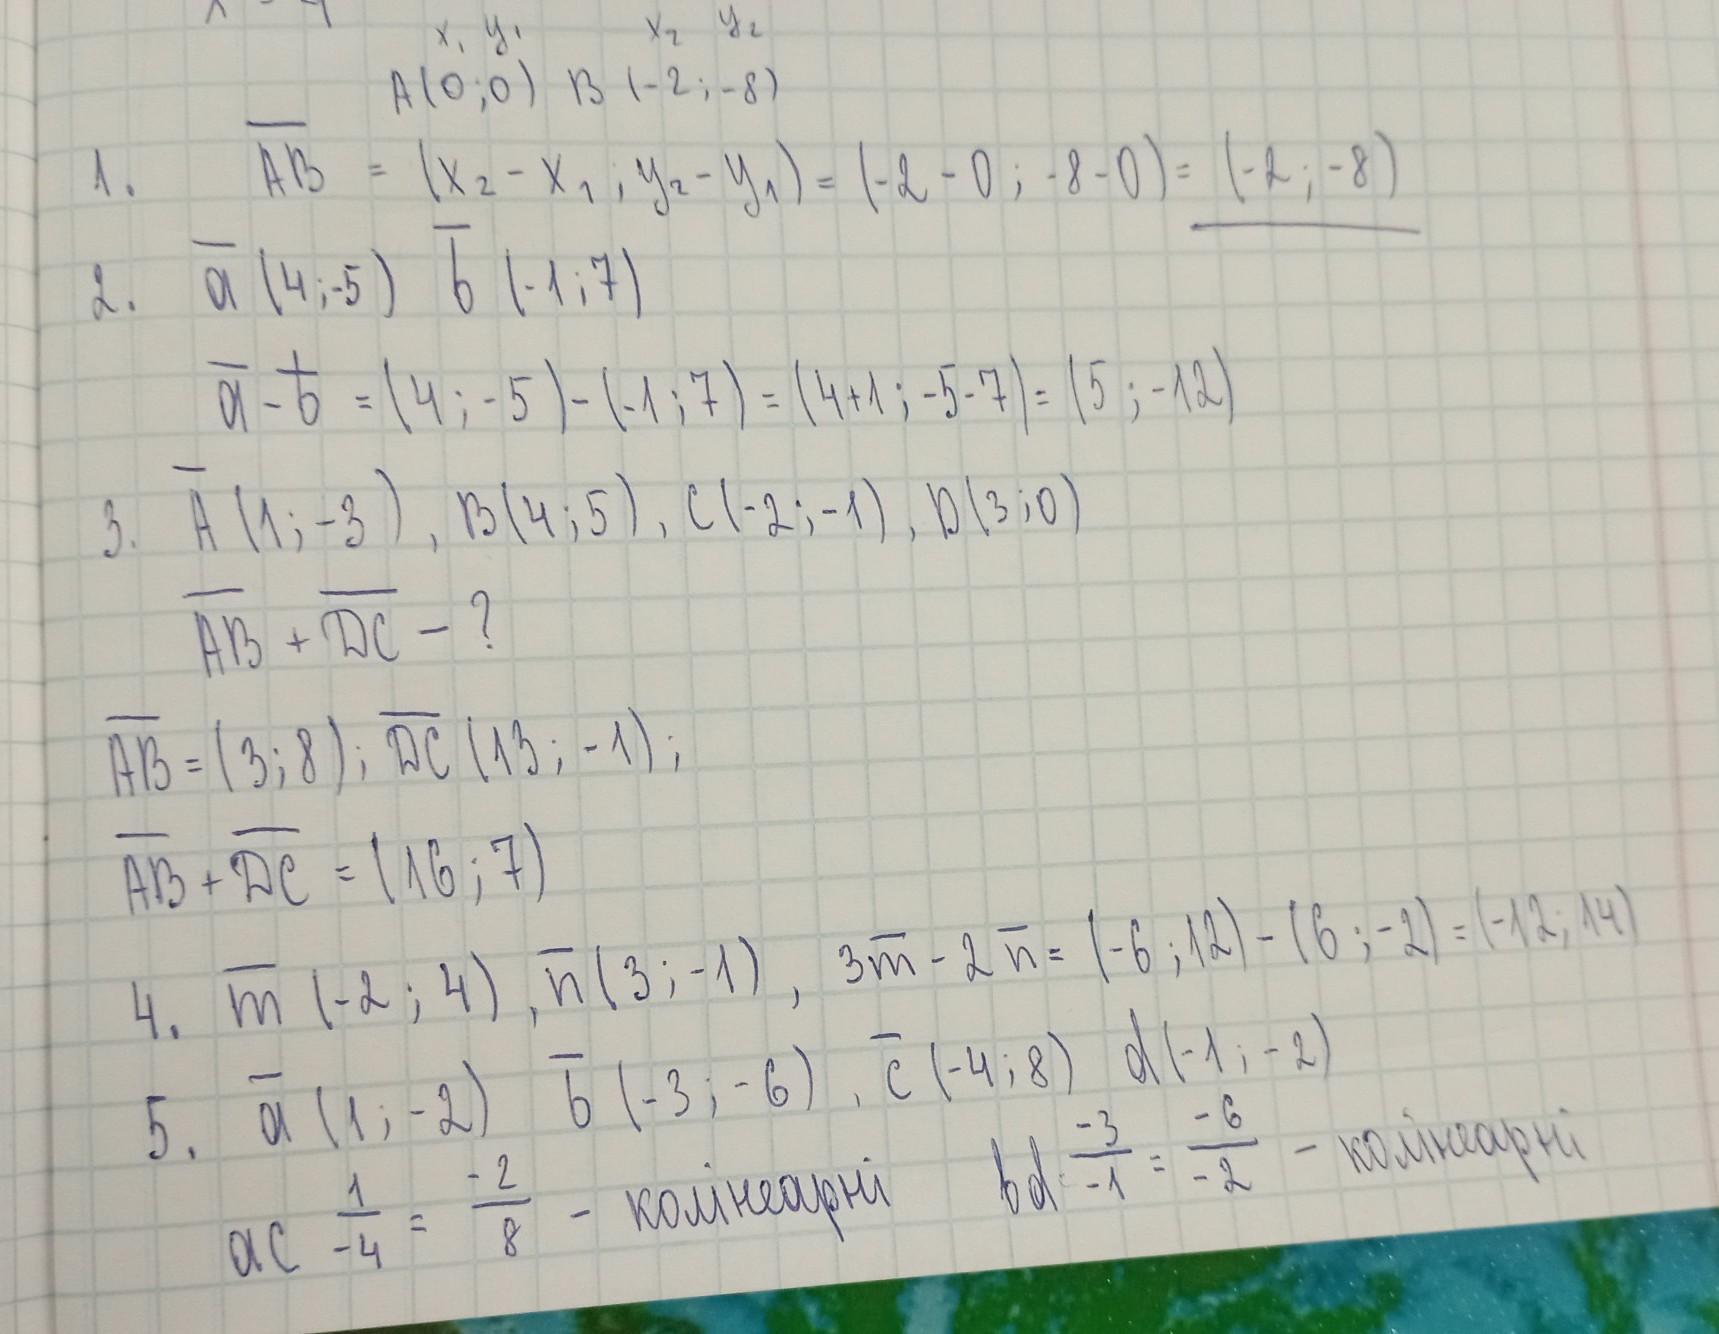 x₁ y₁ x₂ y₂
A(0;0) B(-2;-8)
1. AB = (x₂ - x₁; y₂ - y₁) = (-2-0; -8-0) = (-2;-8)
2. a(4;-5) b(-1;7)
a - b = (4;-5) - (-1;7) = (4+1; -5-7) = (5;-12)
3. A(1;-3), B(4;5), C(-2;-1), D(3;0)
AB + DC - ?
AB = (3;8); DC(13;-1);
AB + DC = (16;7)
4. m(-2;4), n(3;-1), 3m - 2n = (-6;12) - (6;-2) = (-12;14)
5. a(1;-2) b(-3;-6), c(-4;8) d(-1;-2)
ac 1/-4 = -2/8 - колінеарні bd -3/-1 = -6/-2 - колінеарні